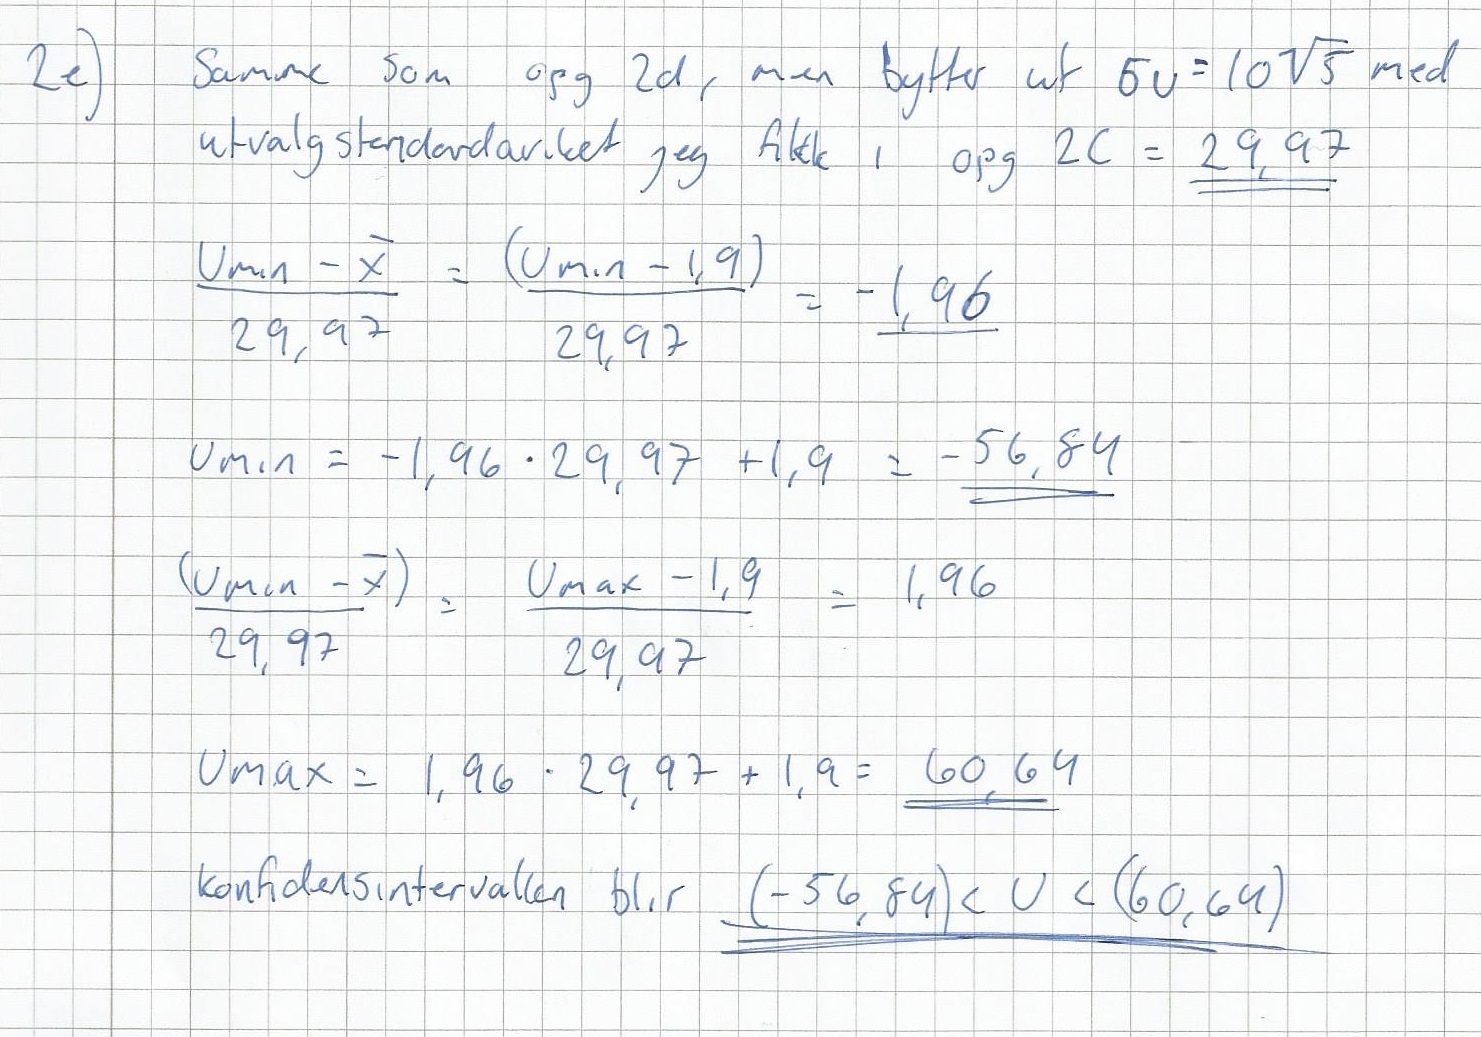 2e) Samme som opg 2d, men bytter ut σu = 10√5 med
utvalgstandardaviket jeg fikk i opg 2C = 29,97
(Umin - x̄)/29,97 = (Umin - 1,9)/29,97 = -1,96
Umin = -1,96 · 29,97 + 1,9 = -56,84
(Umin - x̄)/29,97 = (Umax - 1,9)/29,97 = 1,96
Umax = 1,96 · 29,97 + 1,9 = 60,64
konfidensintervallen blir (-56,84) < U < (60,64)